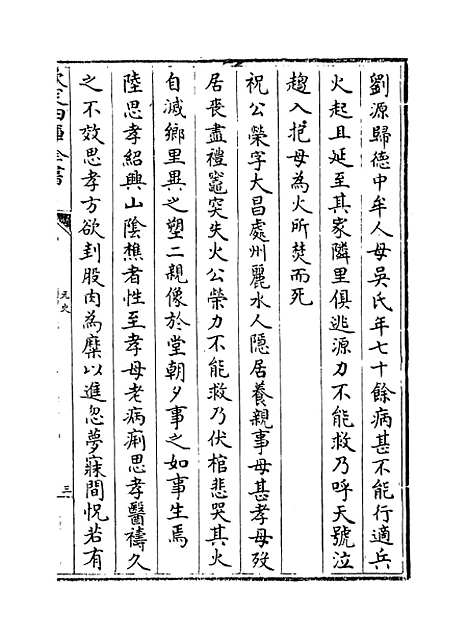 劉源歸德中牟人母吳氏年七十餘病甚不能行適兵
火起且延至其家隣里俱逃源力不能救乃呼天號泣
趨入抱母為火所焚而死
祝公榮字大昌處州麗水人隠居養親事母甚孝母歿
居喪盡禮竈突失火公榮力不能救乃伏棺悲哭其火
自滅鄉里異之塑二親像於堂朝夕事之如事生焉
陸思孝紹興山陰樵者性至孝母老病痢思孝醫禱久
之不效思孝方欲刲股肉為糜以進忽夢寐間怳若有
欽定四庫全書
元史
三